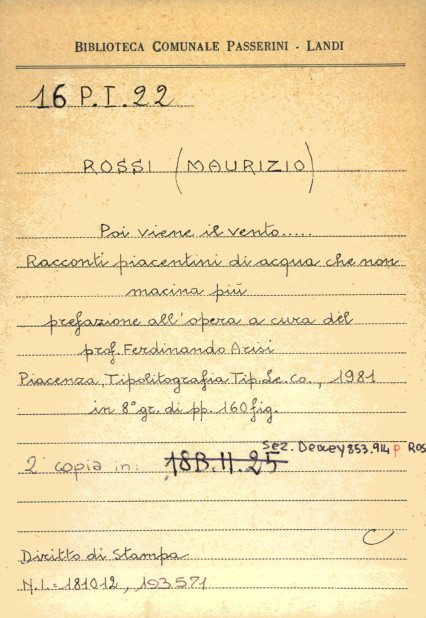 BIBLIOTECA COMUNALE PASSERINI - LANDI
16 P.I.22
ROSSI (MAURIZIO)
Poi viene il vento.....
Racconti piacentini di acqua che non
macina più
prefazione all'opera a cura del
prof. Ferdinando Arisi
Piacenza, Tipolitografia Tip.Le.Co., 1981
in 8° gr. di pp. 160 fig.
Sez. Dewey 853.914 P ROS
2ª copia in: 18B.II.25
C
Diritto di Stampa
N.I.= 181012, 193571